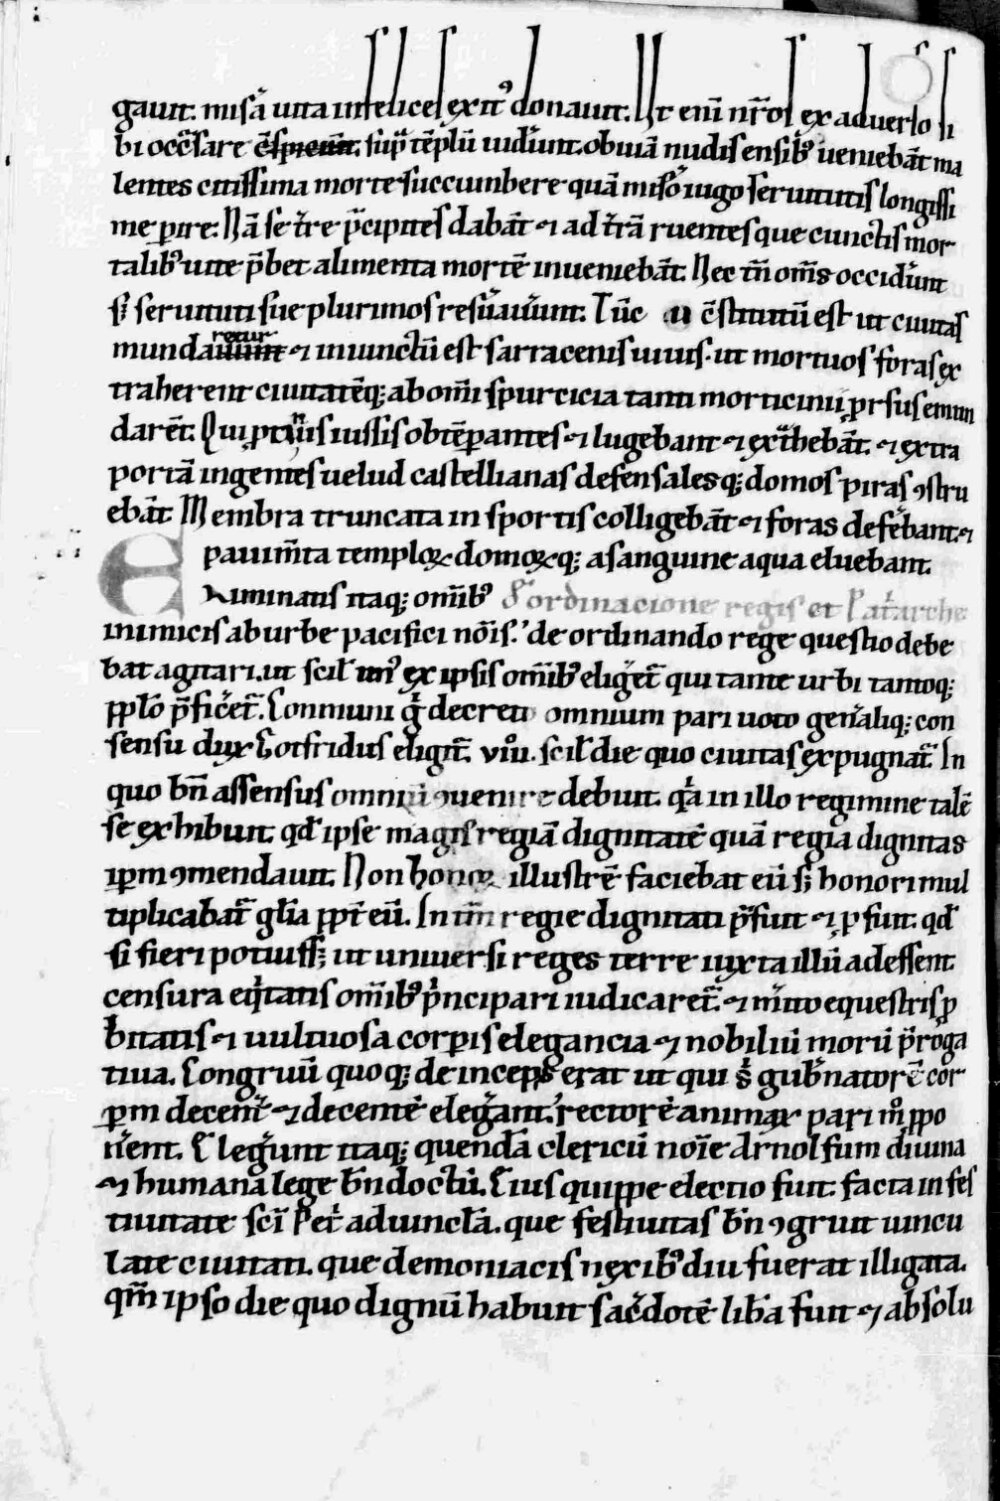 gauit. misā uita infelices exit᷒ donauit. Ut eni nr̄os ex aduerso si
bi occ̄sare sup̄ tēplū uidert. obuiā nudis ensib᷒ ueniebāt ma
lentes citissima morte succumbere quā misō iugo seruitutis longissi
me perire. Nā se tr̄e p̄cipites dabāt ⁊ ad tr̄ā ruentes que cunctis mor
talib᷒ uite p̄bet alimenta mortē inueniebāt. Nec tn̄ om̄s occiderunt
s; seruituti sue plurimos reseruauerunt. Tūc c̄stitutū est ut ciuitas
mundaretur ⁊ iniunctū est sarracenis uiuis. ut mortuos foras ex
traherent ciuitatēq; ab om̄i spurcicia tanti morticinii prorsus emun
darēt. Qui iussis obtēperantes ⁊ lugebant ⁊ ext̄hebāt. ⁊ extra
portā ingentes uelud castellianas defensalesq; domos piras ꝯstru
ebāt. Membra truncata in sportis colligebāt ⁊ foras deferebant. ⁊
pauim̄ta temploꝝ domoꝝq; a sanguine aqua eluebant.
Eliminatis itaq; om̄ib᷒ De ordinacione regis et Patriarche
inimicis ab urbe pacifici nōis. de ordinando rege questio debe
bat agitari. ut scil᷒ un᷒ ex ipsis om̄ib᷒ eliget̄ qui tante urbi tantoq;
pplo p̄ficeret̄. Conmuni g̊ decreto omnium pari uoto gen̄aliq; con
sensu dux Gotfridus eligit̄. viii. scil᷒ die quo ciuitas expugnat̄. In
quo bn̄ assensus omniū ꝯuenire debuit. qa in illo regimine talē
se exhibuit. qd̄ ipse magis regiā dignitatē quā regia dignitas
ipm ꝯmendauit. Non honoꝝ illustrē faciebat eū s; honori mul
tiplicabat̄ gl̄ia ppt̄ eū. In tm̄ regie dignitati p̄fuit ⁊ pfuit. qd̄
si fieri potuiss; ut uniuersi reges terre iuxta illū adessent
censura eq̄tatis om̄ib᷒ p̄ncipari iudicaret̄. ⁊ m̄ito equestris p
bitatis ⁊ uultuosa corpis elegancia ⁊ nobiliū morū p̄roga
tiua. Congruū quoq; deinceps erat ut qui s gub̄natorē cor
pm decent̄ ⁊ decentē elegant. rectorē animaꝝ pari m̊ ppo
nerent. Elegerunt itaq; quendā clericū noīe Arnolfum diuina
⁊ humana lege bn̄ doctū. Eius quippe electio fuit. facta in fes
tiuitate sci Petri aduinc̄lā. que festiuitas bn̄ ꝯgruit uincu
late ciuitati. que demoniacis nexib᷒ diu fuerat illigata.
qm̄ ipso die quo dignū habuit sac̄dotē lib̄a fuit ⁊ absolu